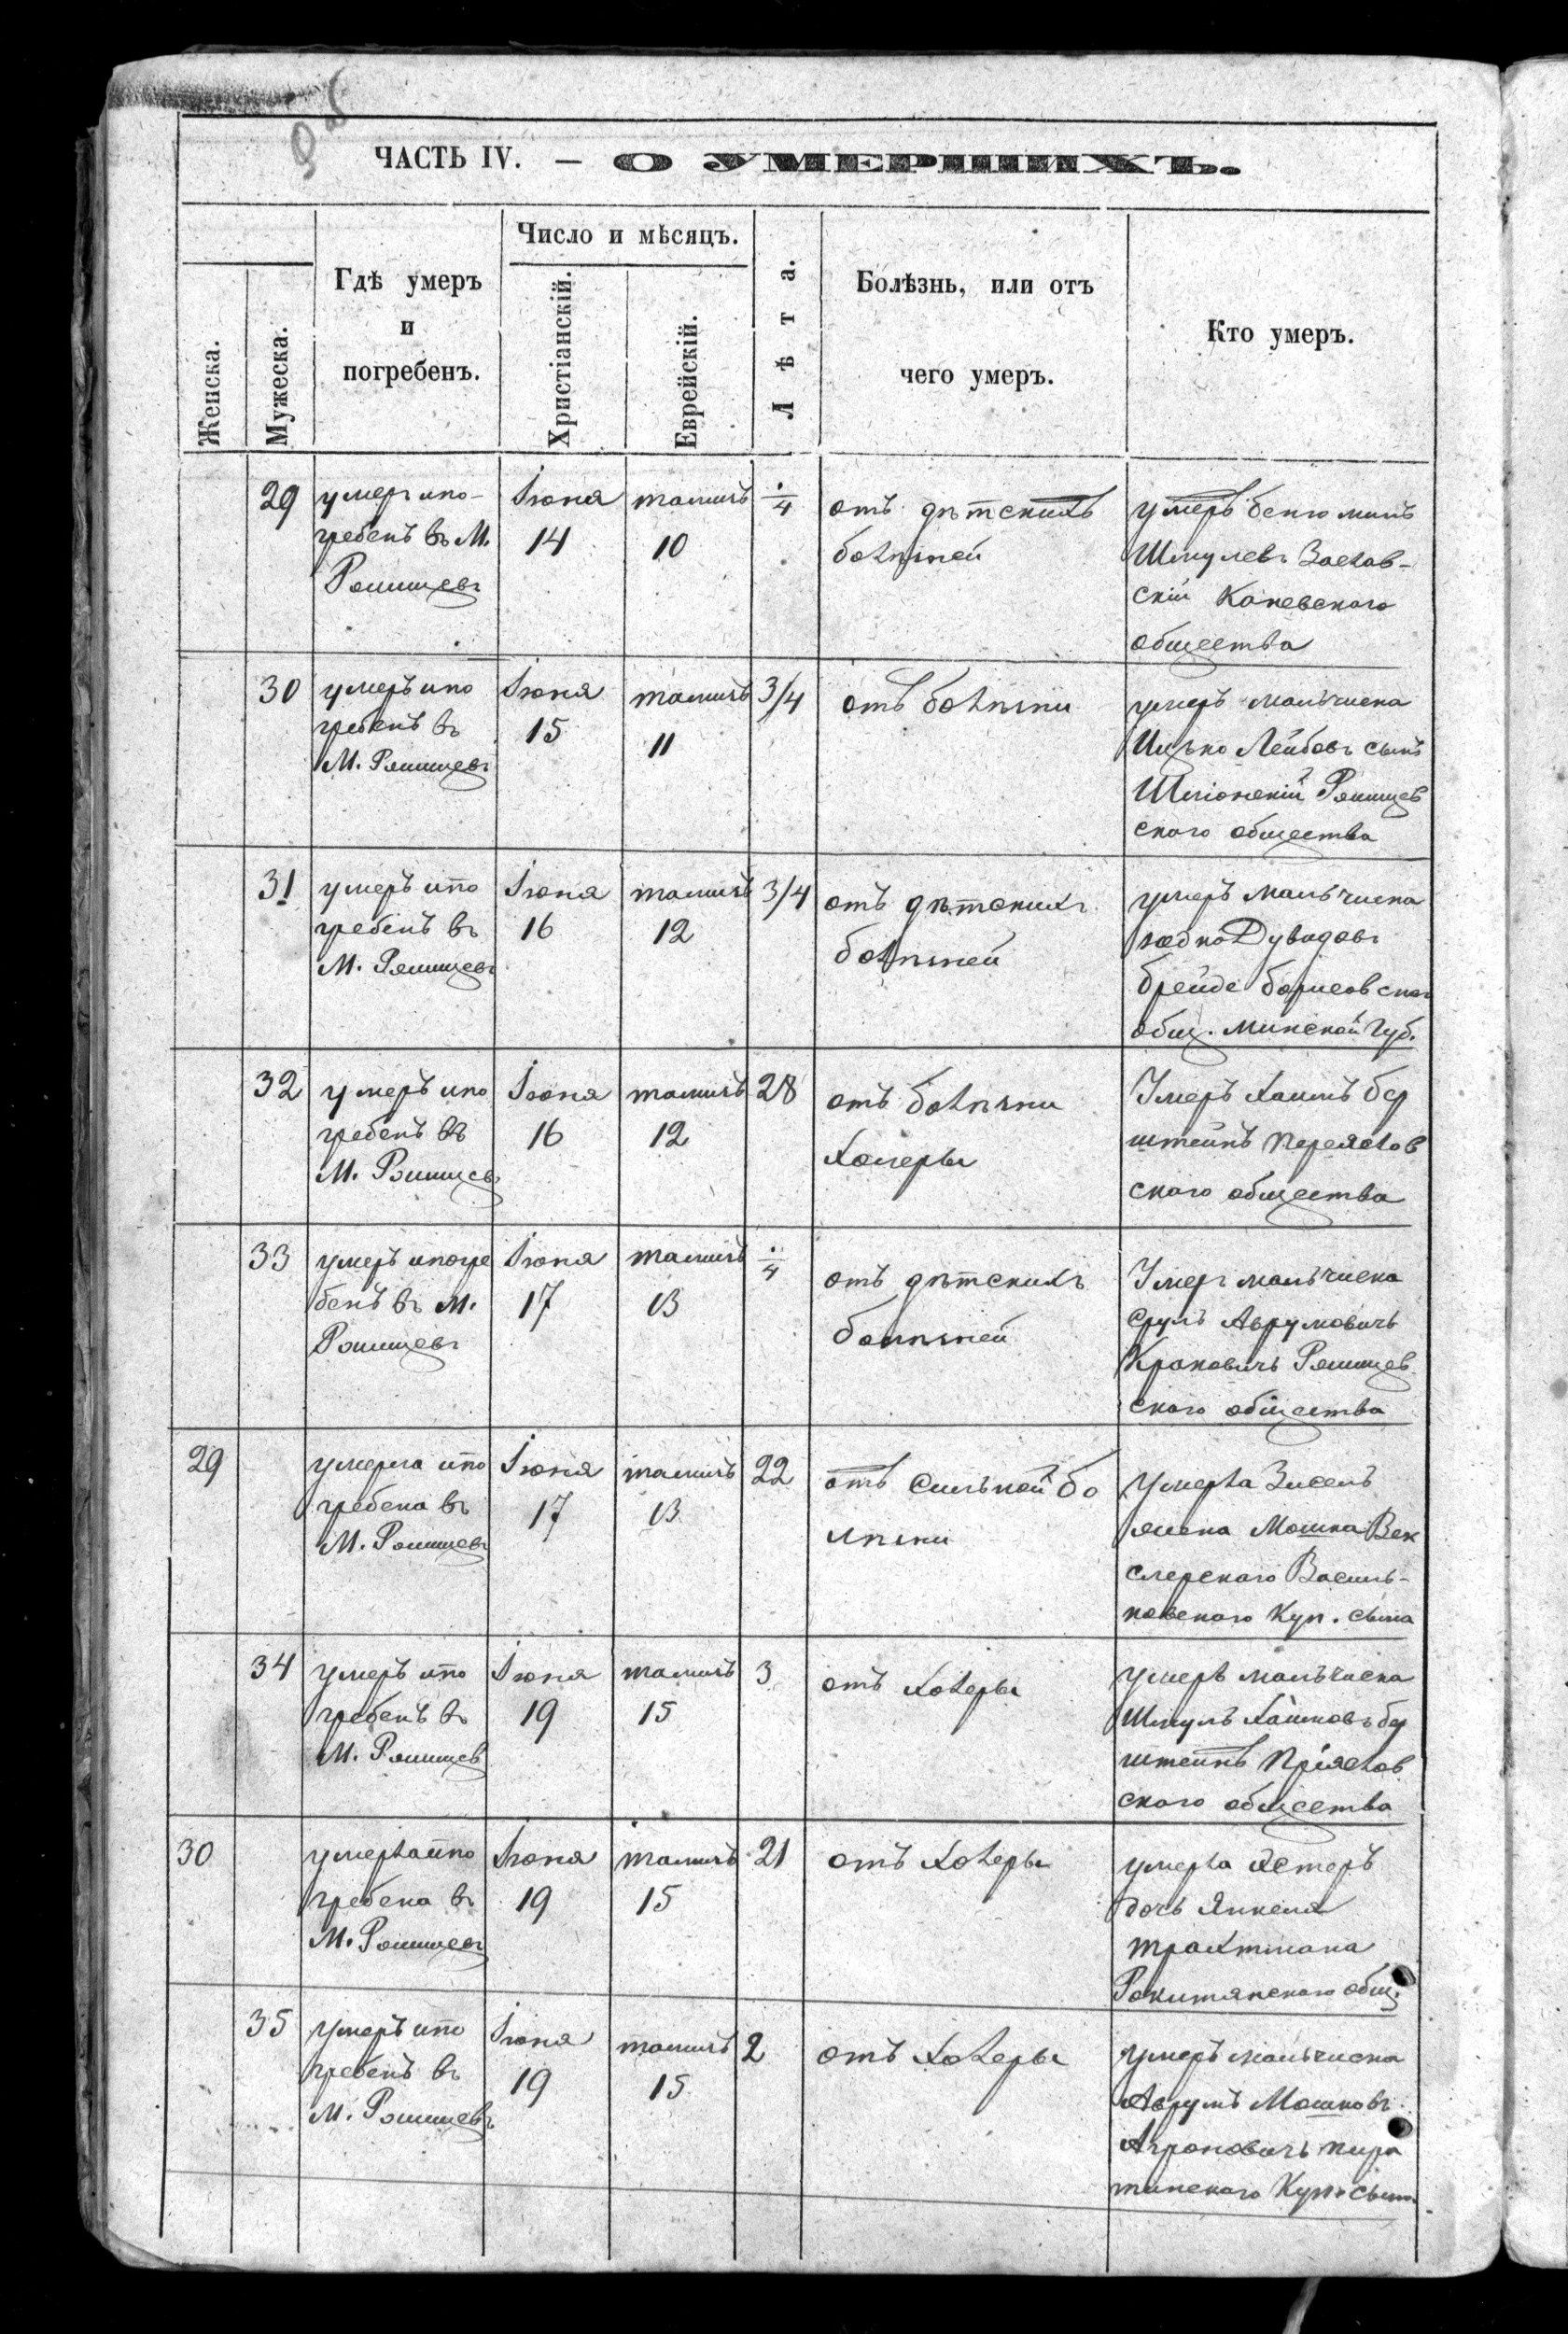 9 об
ЧАСТЬ IV. — О УМЕРШИХЪ.
Женска.
Мужеска.
Гдѣ умеръ
и
погребенъ.
Число и мѣсяцъ.
Христіанскій.
Еврейскій.
Лѣта.
Болѣзнь, или отъ
чего умеръ.
Кто умеръ.
29
умеръ ипо-
гребенъ въ М.
Іюня
14
тамизъ
10
отъ дѣтскихъ
болѣзней
умеръ бенюминъ
Шмулевъ Заслав-
скій Каневскаго
общества
30
умеръ ипо
гребенъ въ
М.
Іюня
15
тамизъ
11
3/4
отъ болѣзни
умеръ мальчика
Ицько Лейбовъ сынъ
ского общества
31
умеръ ипо
гребенъ въ
М.
Іюня
16
тамизъ
12
3/4
отъ дѣтскихъ
болѣзней
умеръ мальчика
Дувидовъ
брейде борисовскаго
общ. Минской Губ.
32
умеръ ипо
гребенъ въ
М.
Іюня
16
тамизъ
12
28
отъ болѣзни
холеры
Умеръ Хаимъ бер
штейнъ переяслов
скаго общества
33
умеръ ипогре
бенъ въ М.
Іюня
17
тамизъ
13
отъ дѣтскихъ
болѣзней
Умеръ мальчика
Сруль Аврумовичъ
ского общества
29
умерла ипо
гребена въ
М.
Іюня
17
тамизъ
13
22
отъ сильной бо
лѣзни
умерла Зисель
жена Мошка Век
слерскаго Василь-
ковскаго Куп. сына
34
умеръ ипо
гребенъ въ
М.
Іюня
19
тамизъ
15
3
отъ холеры
умеръ мальчика
Шмуль Хаимовъ бер
штейнъ
скаго общества
30
умерла ипо
гребена въ
М.
Іюня
19
тамизъ
15
21
отъ холеры
умерла Естеръ
дочь Янкеля
трахтмана
Рокитянскаго общ.
35
умеръ ипо
гребенъ въ
М.
Іюня
19
тамизъ
15
2
отъ холеры
умеръ мальчика
Аврумъ Мошковъ
Агроновичъ пиря
тинскаго Куп. сына